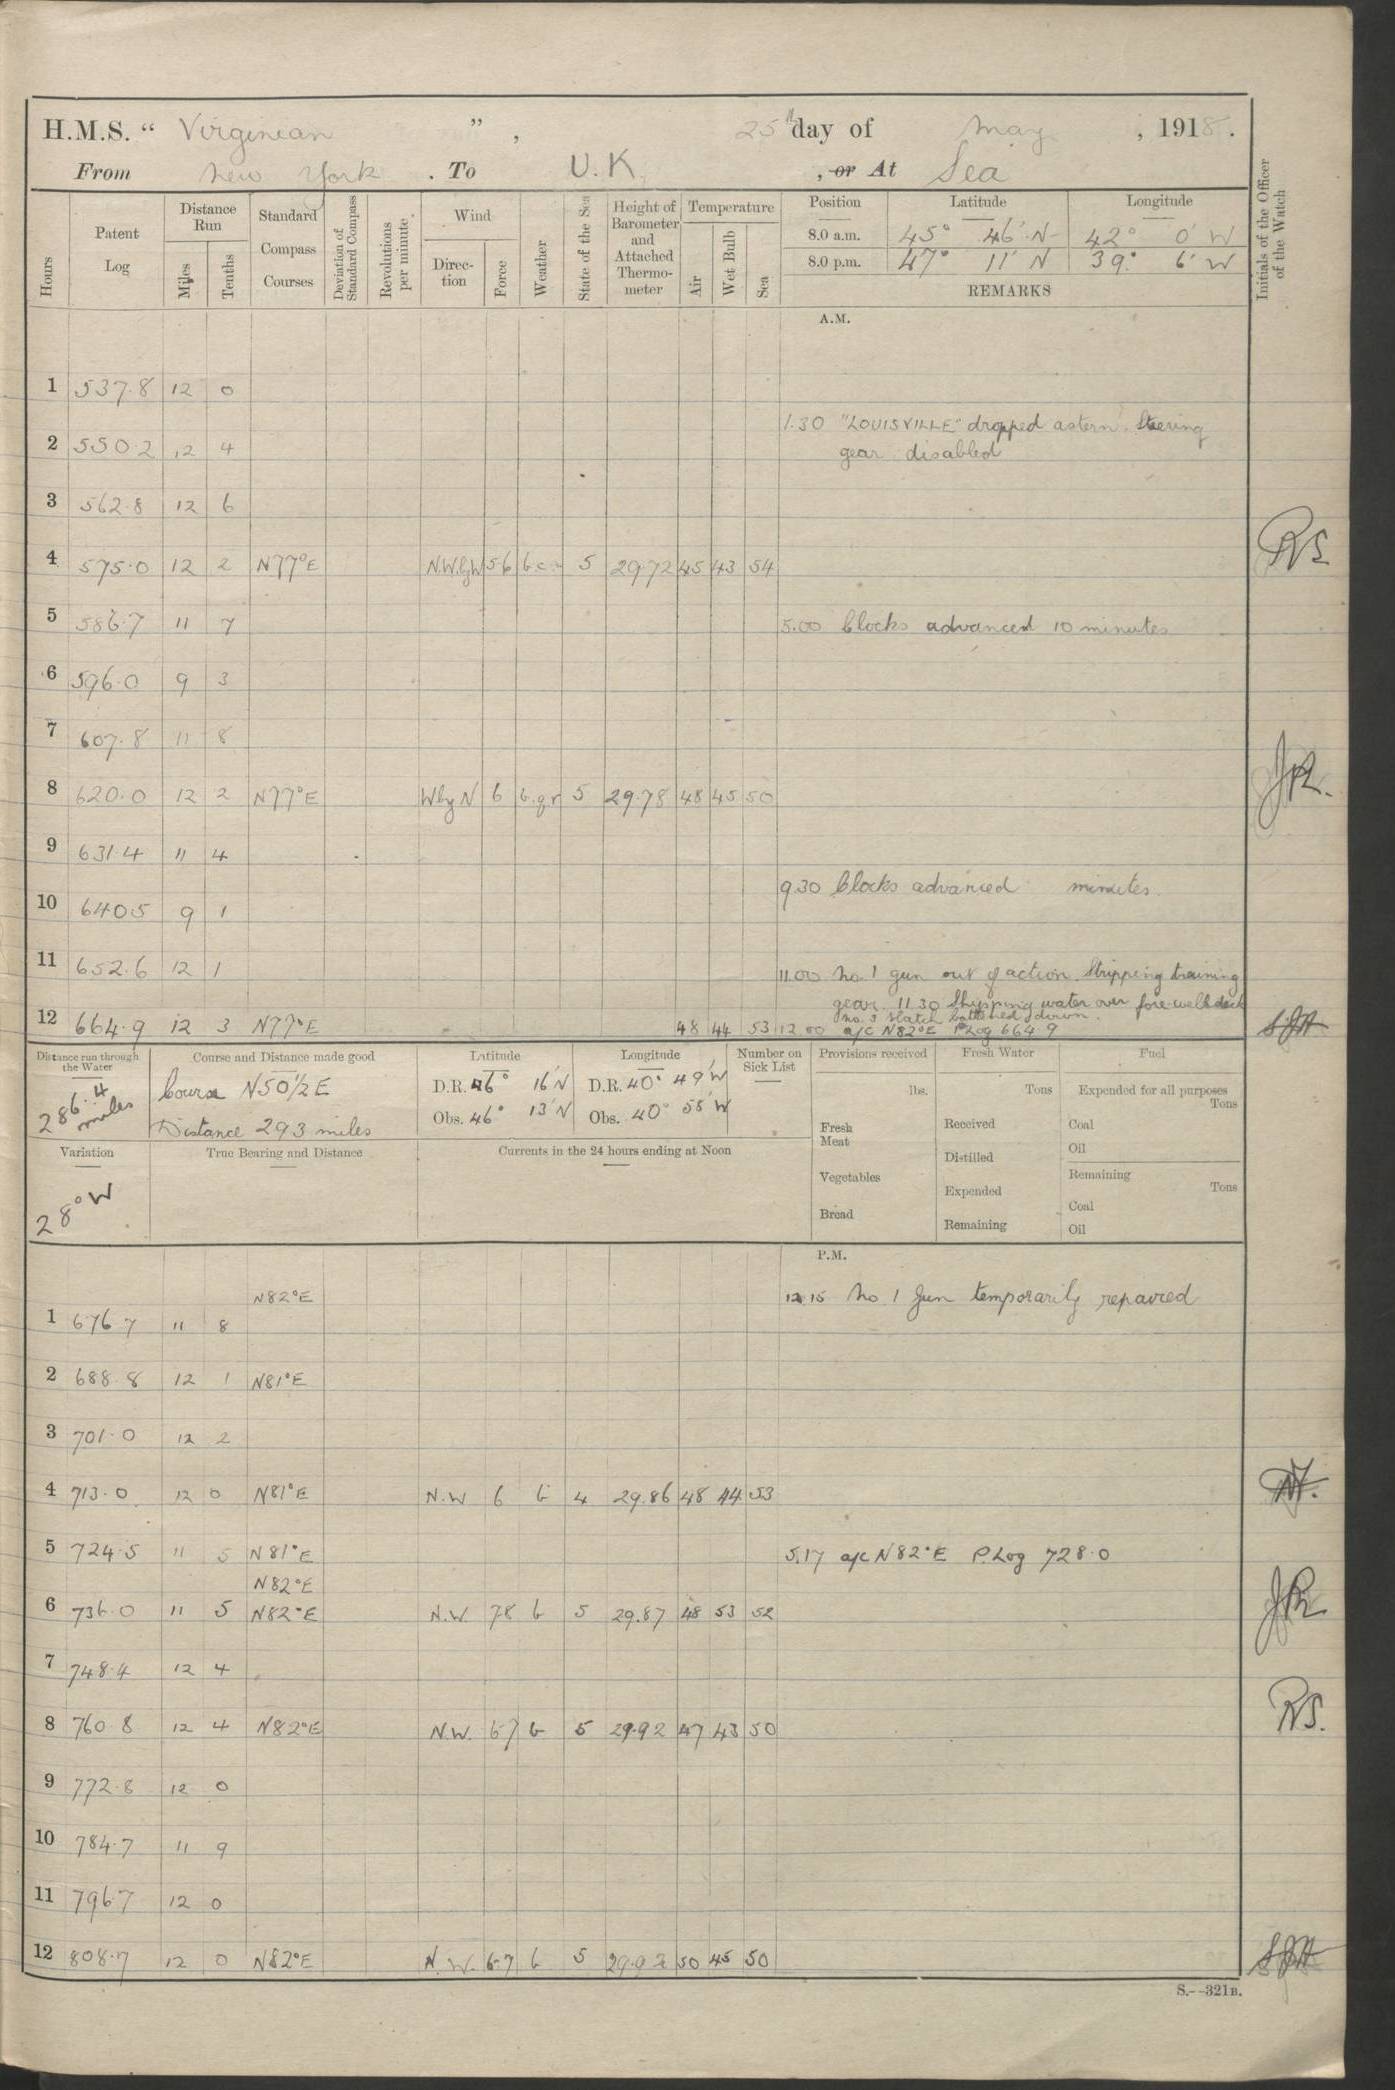 H.M.S. " Virginian ", 25th day of May, 1918.
From New York. To U.K., or At Sea
Hours
Patent Log
Distance Run
Miles
Tenths
Standard Compass Courses
Deviation of Standard Compass
Revolutions per minute
Wind
Direc-tion
Force
Weather
State of the Sea
Height of Barometer and Attached Thermo-meter
Temperature
Air
Wet Bulb
Sea
Position Latitude Longitude
8.0 a.m. 45° 46' N 42° 0' W
8.0 p.m. 47° 11' N 39° 6' W
REMARKS
Initials of the Officer of the Watch
A.M.
1 537.8 12 0
1.30 "LOUISVILLE" dropped astern. Steering
2 550.2 12 4 gear disabled
3 562.8 12 6
4 575.0 12 2 N77°E N.W.byW 56 b.c. 5 29.72 45 43 54 RS
5 586.7 11 7 5.00 Clocks advanced 10 minutes
6 596.0 9 3
7 607.8 11 8
8 620.0 12 2 N77°E WbyN 6 b.qr 5 29.78 48 45 50 JR.
9 631.4 11 4
9.30 Clocks advanced minutes.
10 640.5 9 1
11 652.6 12 1 11.00 No. 1 gun out of action. Stripping training
gear. 11.30 Shipping water over fore well deck
No. 3 Hatch battened down.
12 664.9 12 3 N77°E 48 44 53 12.00 a/c N82°E P.Log 664.9
Distance run through the Water
286.4 miles
Course and Distance made good
Course N50½E
Distance 293 miles
Latitude
D.R. 46° 16' N
Obs. 46° 13' N
Longitude
D.R. 40° 49' W
Obs. 40° 58' W
Number on Sick List
Provisions received
lbs.
Fresh Meat
Vegetables
Bread
Fresh Water
Tons
Received
Distilled
Expended
Remaining
Fuel
Expended for all purposes
Tons
Coal
Oil
Remaining
Tons
Coal
Oil
Variation
28°W
True Bearing and Distance
Currents in the 24 hours ending at Noon
P.M.
N82°E 12.15 No. 1 Gun temporarily repaired
1 676.7 11 8
2 688.8 12 1 N81°E
3 701.0 12 2
4 713.0 12 0 N81°E N.W 6 b 4 29.86 48 44 53
5 724.5 11 5 N81°E 5.17 a/c N82°E P.Log 728.0
N82°E
6 736.0 11 5 N82°E N.W. 78 b 5 29.87 48 53 52 JR
7 748.4 12 4
8 760.8 12 4 N82°E N.W. 67 b 5 29.92 47 43 50 RS.
9 772.8 12 0
10 784.7 11 9
11 796.7 12 0
12 808.7 12 0 N82°E N.W. 6.7 b 5 29.92 50 45 50
S.—321B.